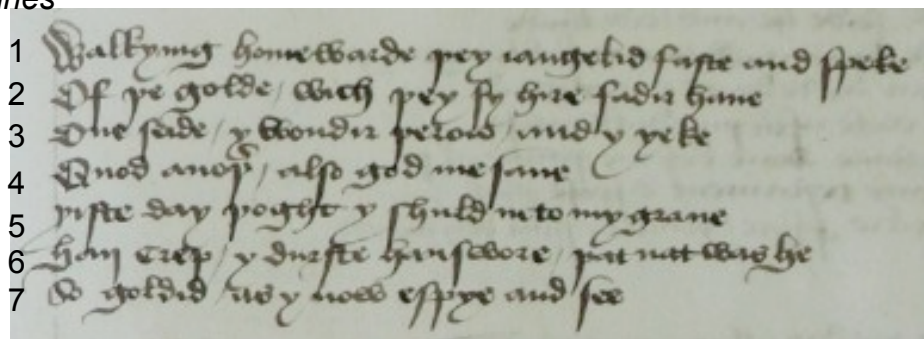 ines
1 Walkyng homewarde þey iangelid faste and speke
2 Of þe golde / wich þey sy hire fadir haue
3 One seide / y wondir þeron / and y yeke
4 Quod anoþ / also god me saue
5 yiste day þoght y shuld in to my graue
6 han crep / y durste han swore / þat nat was he
7 So goldid / as y now espye and see